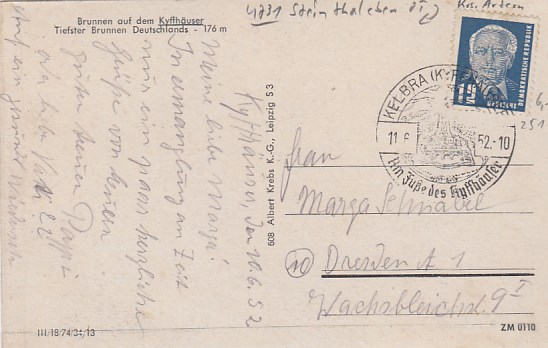 Brunnen auf dem Kyffhäuser
Tiefster Brunnen Deutschlands - 176 m
4731 Steinthaleben
Krs. Artern
Kyffhäuser, den 10.6.52
Meine liebe Marga!
In ermanglung an Zeit
nur ein paar herzliche
Grüße von deinem
guten treuen Pappi
Auf ein gesundes Wiedersehn
608 Albert Krebs K.-G., Leipzig S 3
DEUTSCHE
DEMOKRATISCHE REPUBLIK
KELBRA (KYFFH)
11.6.52.-10
Am Fuße des Kyffhäuser
251
Frau
Marga Schnabel
(10) Dresden A 1
Wachsbleichstr. 9 I
III/18/74/34/13
ZM 0110